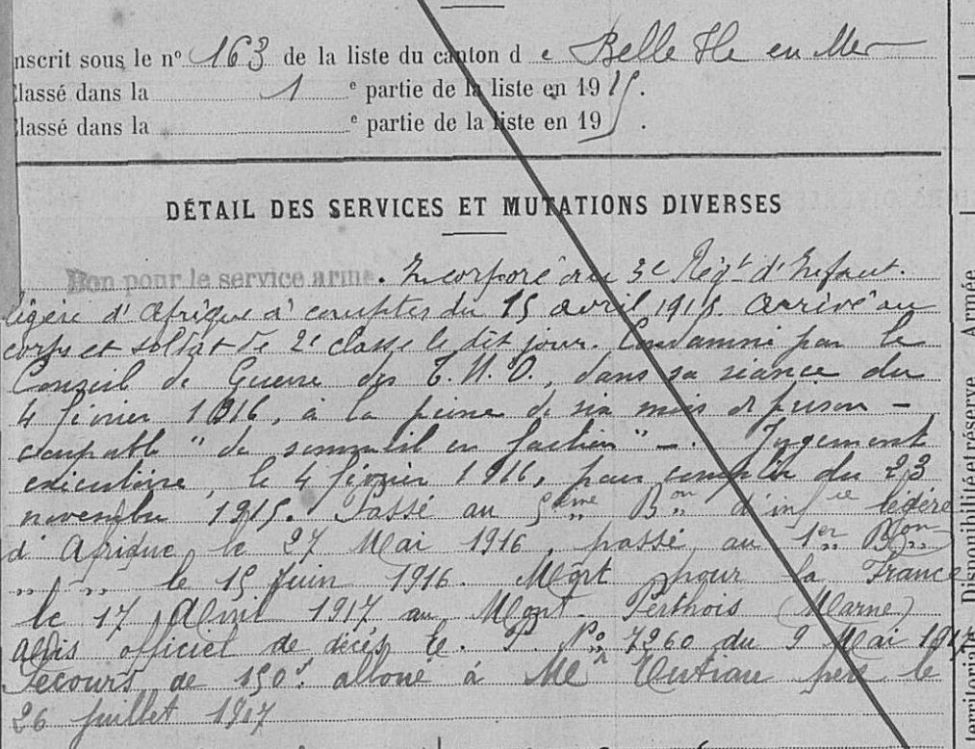 nscrit sous le n° 163 de la liste du canton d e Belle Ile en Mer
lassé dans la 1 e partie de la liste en 1915.
lassé dans la e partie de la liste en 19 .
DÉTAIL DES SERVICES ET MUTATIONS DIVERSES
Bon pour le service armé. Incorporé au 3e Régt d'Infant.
légère d'Afrique à compter du 15 avril 1915. Arrivé au
corps et soldat de 2e classe le dit jour. Condamné par le
Conseil de Guerre des T.M.O., dans sa séance du
4 février 1916, à la peine de six mois de prison -
coupable "de sommeil en faction" -. Jugement
exécutoire, le 4 février 1916, pour compter du 23
novembre 1915. Passé au 5ème Bon d'infie légère
d'Afrique, le 27 Mai 1916, passé au 1er Bon
" " le 15 Juin 1916. Mort pour la France
le 17 Avril 1917 au Mont Perthois (Marne)
Avis officiel de décès N° 7260 du 9 Mai 1917
Secours de 150f alloué à Mr père le
26 juillet 1917
Disponibilité et réserve Armée
territorial